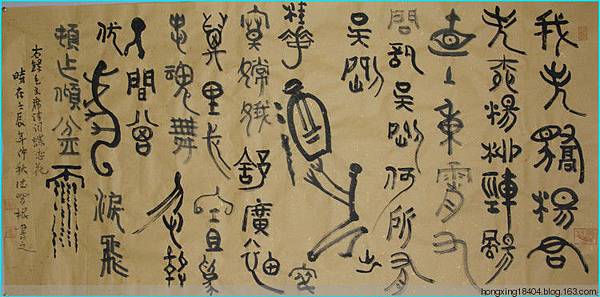 我失驕楊君
失柳楊柳輕颺
直上重霄九
問訊吳剛何所有
吳剛捧出
桂花酒寂
寞嫦娥舒廣袖
萬里長空且為
忠魂舞忽報
人間曾
伏虎淚飛
頓作傾盆雨
右錄毛主席詩詞蝶恋花
時在壬辰年仲秋書之
hongxing18404.blog.163.com